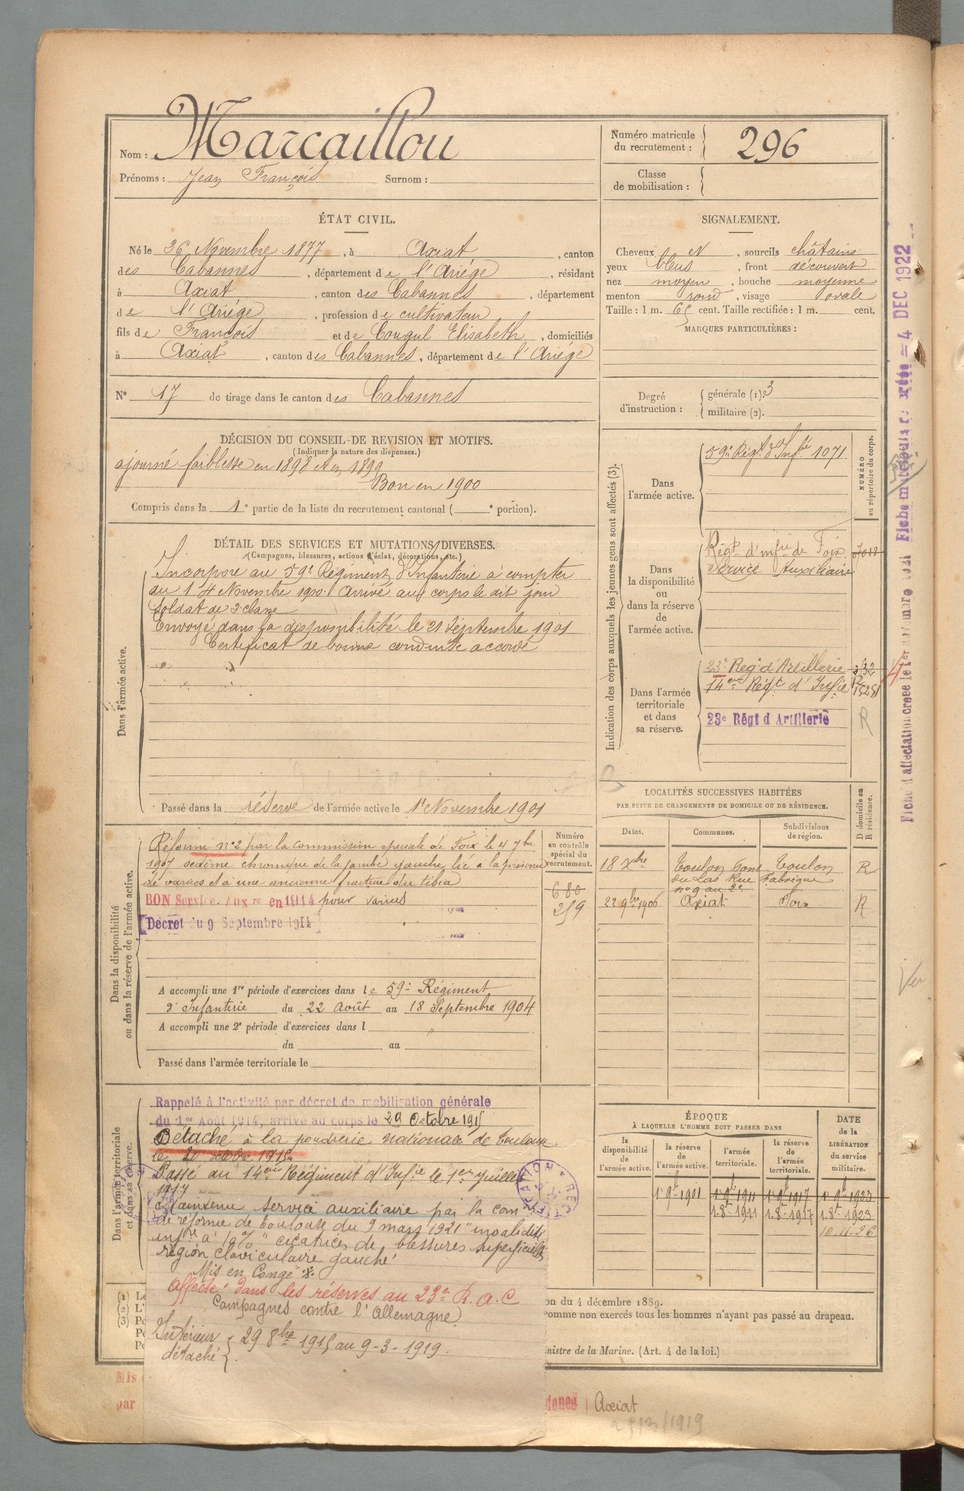 Nom : Marcaillou
Prénoms : Jean François Surnom :
Numéro matricule du recrutement : 296
Classe de mobilisation :
ÉTAT CIVIL.
Né le 26 Novembre 1877, à Axiat, canton
des Cabannes, département de l'Ariége, résidant
à Axiat, canton des Cabannes, département
de l'Ariége, profession de cultivateur
fils de François et de Cougul Elisabeth, domiciliés
à Axiat, canton des Cabannes, département de l'Ariége
N° 17 de tirage dans le canton des Cabannes
SIGNALEMENT.
Cheveux N, sourcils châtains
yeux bleus, front découvert
nez moyen, bouche moyenne
menton rond, visage ovale
Taille : 1 m. 65 cent. Taille rectifiée : 1 m. cent.
MARQUES PARTICULIÈRES :
Degré d'instruction : générale (1) 3
militaire (2).
DÉCISION DU CONSEIL DE REVISION ET MOTIFS.
(Indiquer la nature des dispenses.)
ajourné faiblesse en 1898 et en 1899
Bon en 1900
Compris dans la 1e partie de la liste du recrutement cantonal ( e portion).
DÉTAIL DES SERVICES ET MUTATIONS DIVERSES.
(Campagnes, blessures, actions d'éclat, décorations, etc.)
Dans l'armée active.
Incorporé au 59e Régiment d'Infanterie à compter
du 14 Novembre 1900. Arrivé au corps le dit jour
Soldat de 2e classe
Envoyé dans la disponibilité le 21 Septembre 1901
Certificat de bonne conduite accordé
Passé dans la réserve de l'armée active le 1er Novembre 1901
Indication des corps auxquels les jeunes gens sont affectés (3).
NUMÉRO au répertoire du corps.
Dans l'armée active.
59e Régt d'Infie 1071
Dans la disponibilité ou dans la réserve de l'armée active.
Régt d'infie de Foix
Service Auxiliaire
Dans l'armée territoriale et dans sa réserve.
23e Régt d'Artillerie
14eme Régt d'Infie
23e Régt d'Artillerie
R
LOCALITÉS SUCCESSIVES HABITÉES
PAR SUITE DE CHANGEMENTS DE DOMICILE OU DE RÉSIDENCE.
Dates. Communes. Subdivisions de région. D domicile ou R résidence.
18 Xbre Toulon Toulon R
du Las Rue Fabrique
22 9bre 1906 Axiat Foix R
Dans la disponibilité ou dans la réserve de l'armée active.
Numéro au contrôle spécial du recrutement.
680
219
Réformé n°2 par la commission spéciale de Foix le 4 7bre
1907 oedème chronique de la jambe gauche, lié à la présence
de varices et à une ancienne fracture du tibia
BON Service Auxre en 1914 pour varices
Décret du 9 Septembre 1914
A accompli une 1re période d'exercices dans le 59e Régiment
d'Infanterie du 22 Août au 18 Septembre 1904
A accompli une 2e période d'exercices dans l
du au
Passé dans l'armée territoriale le
Dans l'armée territoriale et dans sa réserve.
Rappelé à l'activité par décret de mobilisation générale
du 1er Août 1914, arrivé au corps le 29 Octobre 1915
Détaché à la poudrerie nationale de Toulouse
Passé au 14eme Régiment d'Infie le 1er Juillet
1917
Maintenu service auxiliaire par la com
de réforme de Toulouse du 9 mars 1921 "invalidité
infre à 10%" cicatrices de blessures superficielles
région claviculaire gauche"
Mis en Congé
Affecté dans les réserves au 23e R.A.C
Campagnes contre l'Allemagne
Intérieur détaché { 29 8bre 1915 au 9-3-1919.
ÉPOQUE
À LAQUELLE L'HOMME DOIT PASSER DANS
la disponibilité de l'armée active. la réserve de l'armée active. l'armée territoriale. la réserve de l'armée territoriale.
DATE de la LIBÉRATION du service militaire.
1 9bre 1901 1 9bre 1911 1 9bre 1917 1 9bre 1923
1.8t 1911 1.8t 1917 1.8t 1923
10.11.26
on du 4 décembre 1889.
omme non exercés tous les hommes n'ayant pas passé au drapeau.
inistre de la Marine. (Art. 4 de la loi.)
Mis
par
Axiat
Ver
4 DEC 1922